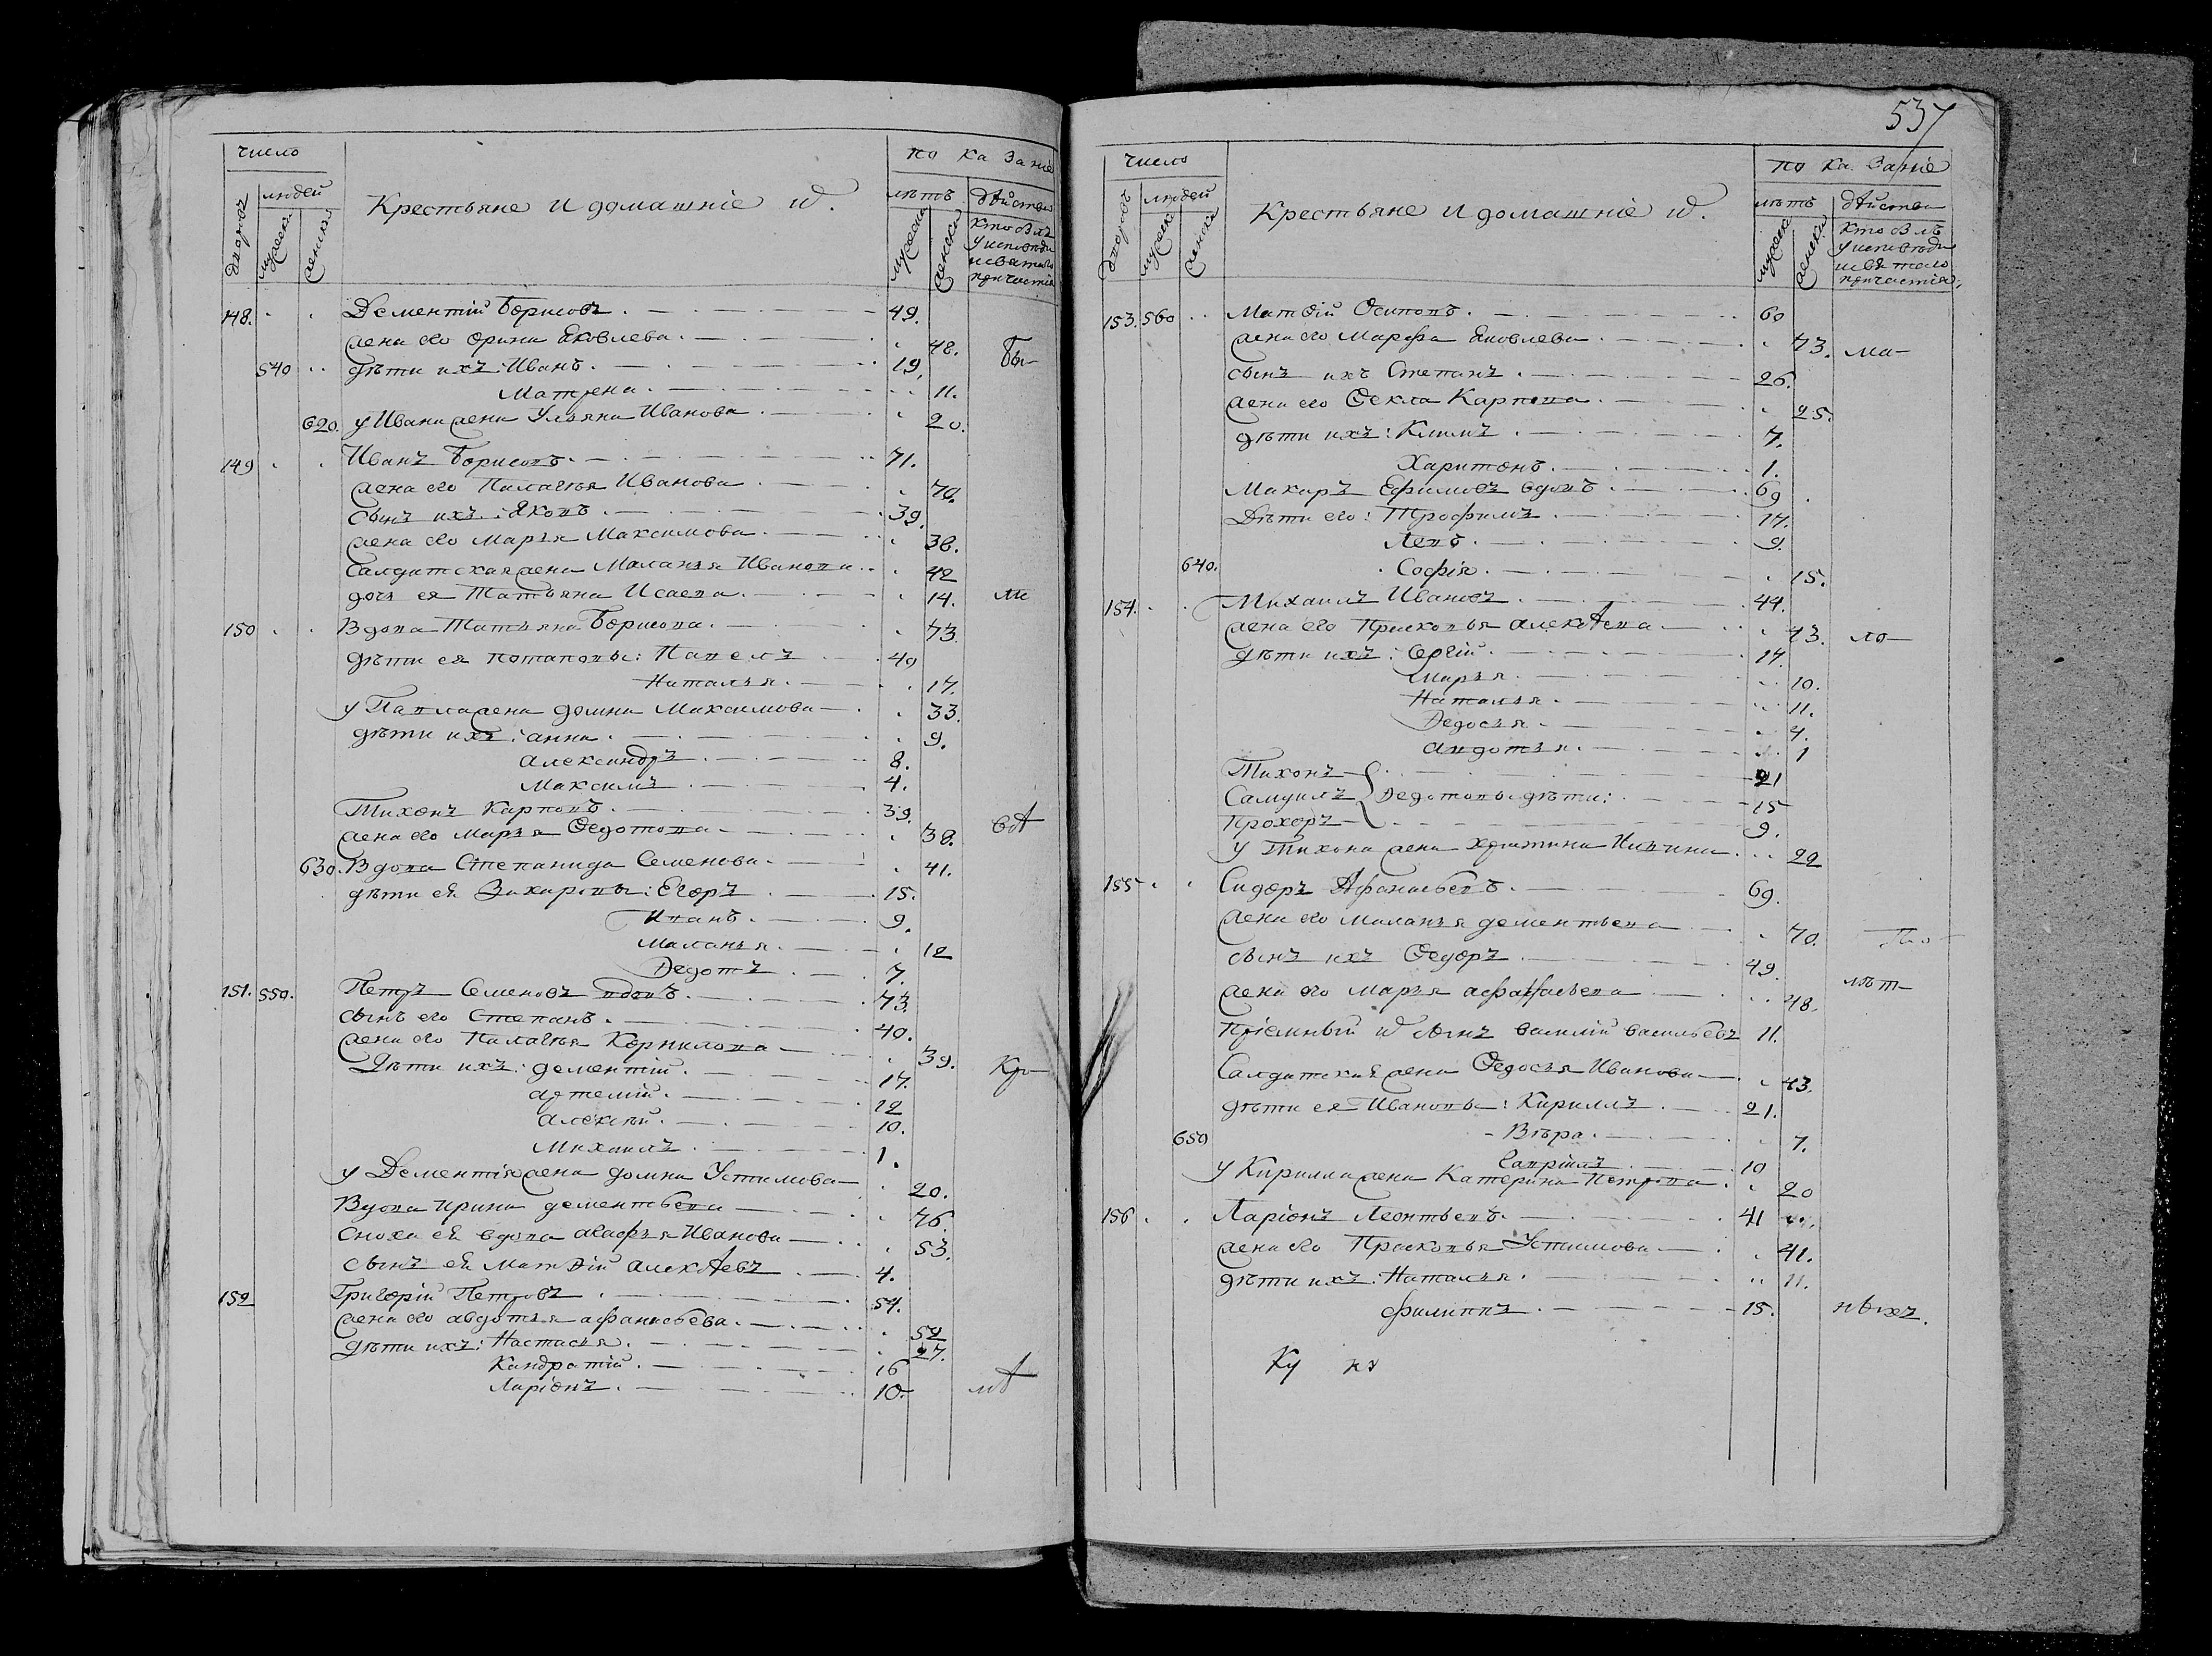 число
по ка Заніе
дворовъ
людей
мужеск
женск
Крестьяне и домашніе их.
лѣтъ
мужеска
женска
дѣйства
кто былъ
у исповѣди
и святаго
причастія
148. Дементій Борисовъ 49.
жена его Орина Яковлева 48. бы
540 дѣти ихъ: Иванъ 19.
Матрена 11.
620. у Ивана жена Ульяна Иванова 20.
149 Иванъ Борисовъ 71.
жена его Палагѣя Иванова 70.
сынъ ихъ: Яковъ 39.
жена его Марья Максимова 38.
Салдатская жена Маланья Иванова 42
дочь ея Татьяна Исаева 14. ли
150 Вдова Татьяна Борисова 73.
дѣти ея Потаповы: Павелъ 40
Наталья 17.
у Павла жена Домна Максимова 33.
дѣти ихъ: Анна 9.
Александръ 8.
Максимъ 4.
Тихонъ Карповъ 39.
жена его Марья Ѳедотова 38. вѣ
630. Вдова Степанида Семенова 41.
дѣти ея Захаровы: Егоръ 15.
Иванъ 9.
Маланья 12
Ѳедотъ 7.
151. 550. Петръ Семеновъ вдовъ 73.
сынъ его Степанъ 40.
жена его Палагѣя Корнилова 39.
Дѣти ихъ: Дементій 17. Кро
Артемій 12
Алексѣй 10.
Михаилъ 1.
у Дементія жена Домна Устимова 20.
Вдова Ирина Дементьева 76.
сноха ея вдова Агафья Иванова 53.
сынъ ея Матѳій Алексѣевъ 4.
152 Григорій Петровъ 54.
жена его Авдотья Афанасьева 52
дѣти ихъ: Настасья 27.
Кандратій 16
Ларіонъ 10. мѣ
537
число
по ка Заніе
дворовъ
людей
мужеск
женска
Крестьяне и домашніе их.
лѣтъ
мужеск
женска
дѣйства
кто былъ
у исповѣди
и святаго
причастія
153. 560 Матѳій Осиповъ 60
жена его Марѳа Яковлева 73. ма
сынъ ихъ Степанъ 26.
жена его Ѳекла Карпова 25.
дѣти ихъ: Климъ 7.
Харитонъ 1.
Макаръ Ефимовъ вдовъ 69
Дѣти его: Трофимъ 17.
Левъ 9.
640. Софія 15.
154. Михаилъ Ивановъ 44.
жена его Прасковья Алексѣева 43. ло
дѣти ихъ: Сергій 17.
Марья 10.
Наталья 11.
Ѳедосья 4.
Авдотья 1
Тихонъ 21
Самуилъ Ѳедотовы дѣти: 15
Прохоръ 9.
у Тихона жена Христина Никитина 22
155 Сидоръ Афанасьевъ 69.
жена его Маланья Дементьева 70.
сынъ ихъ Ѳедоръ 49.
жена его Марья Афанасьева 48. лѣт
Пріемный их сынъ Василій Васильевъ 11.
Салдатская жена Ѳедосья Иванова 43.
дѣти ея Ивановы: Кириллъ 21.
650 Вѣра 7.
Гавріилъ 10
у Кирилла жена Катерина Петрова 20
156 Ларіонъ Леонтьевъ 41
жена его Прасковья Устимова 41.
дѣти ихъ: Наталья 11.
Филиппъ 15. ныхъ.
Ку пъ